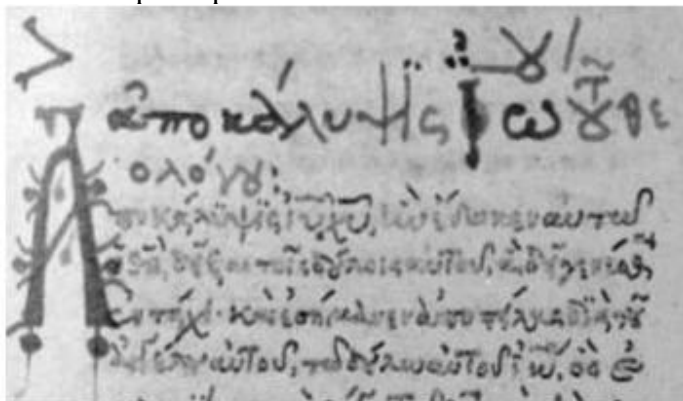 ἀποκάλυψϊς Ἰω τοῦ θε
ολόγου:
Αποκάλυψϊς ιυ χυ, ἣν ἔδωκεν αὐτῶ
ὁ θς, δεῖξαι τοῖς δούλοις αὐτοῦ, ἃ δεῖ γενέσθαι
ἐν τάχει· καὶ ἐσήμανεν ἀποστείλας διὰ τοῦ
ἀγγέλου αὐτοῦ, τῶ δούλω αὐτοῦ ἰω, ὃς ἐ